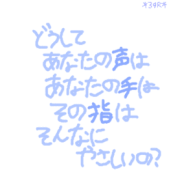 どうして
あなたの声は
あなたの手は
その指は
そんなに
やさしいの?